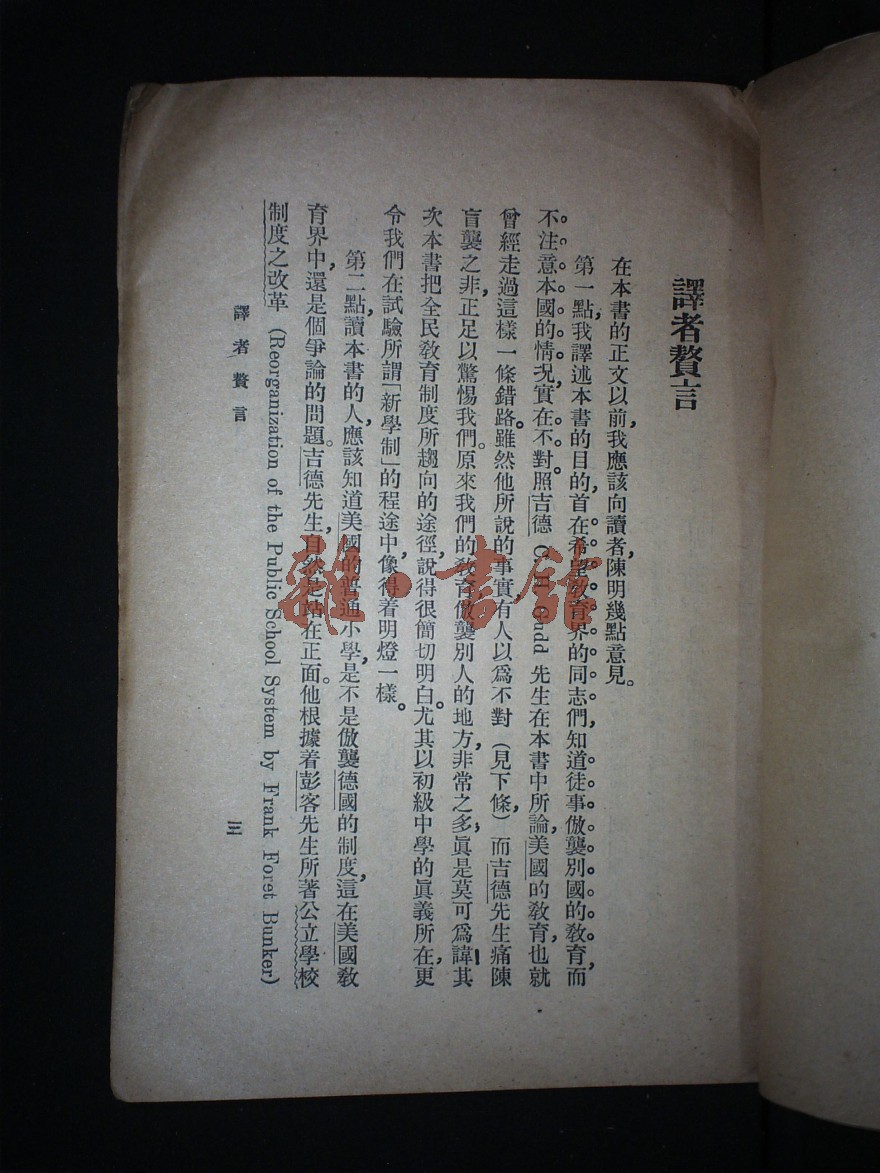 譯者贅言
在本書的正文以前,我應該向讀者陳明幾點意見。
第一點,我譯述本書的目的,首在希望教育界的同志們,知道徒事倣襲別國的教育,而
不注意本國的情況,實在不對。照吉德 C. H. Gudd 先生在本書中所論,美國的教育,也就
曾經走過這樣一條錯路。雖然他所說的事實有人以爲不對(見下條)而吉德先生痛陳
盲襲之非,正足以驚惕我們。原來我們的教育倣襲別人的地方,非常之多,眞是莫可爲諱。其
次本書把全民教育制度所趨向的途徑,說得很簡切明白。尤其以初級中學的眞義所在,更
令我們在試驗所謂「新學制」的程途中,像得着明燈一樣。
第二點,讀本書的人,應該知道美國的普通小學,是不是倣襲德國的制度,這在美國教
育界中,還是個爭論的問題。吉德先生,自然是站在正面。他根據着彭客先生所著公立學校
制度之改革 (Reorganization of the Public School System by Frank Foret Bunker)
譯者贅言
三
雜·書館